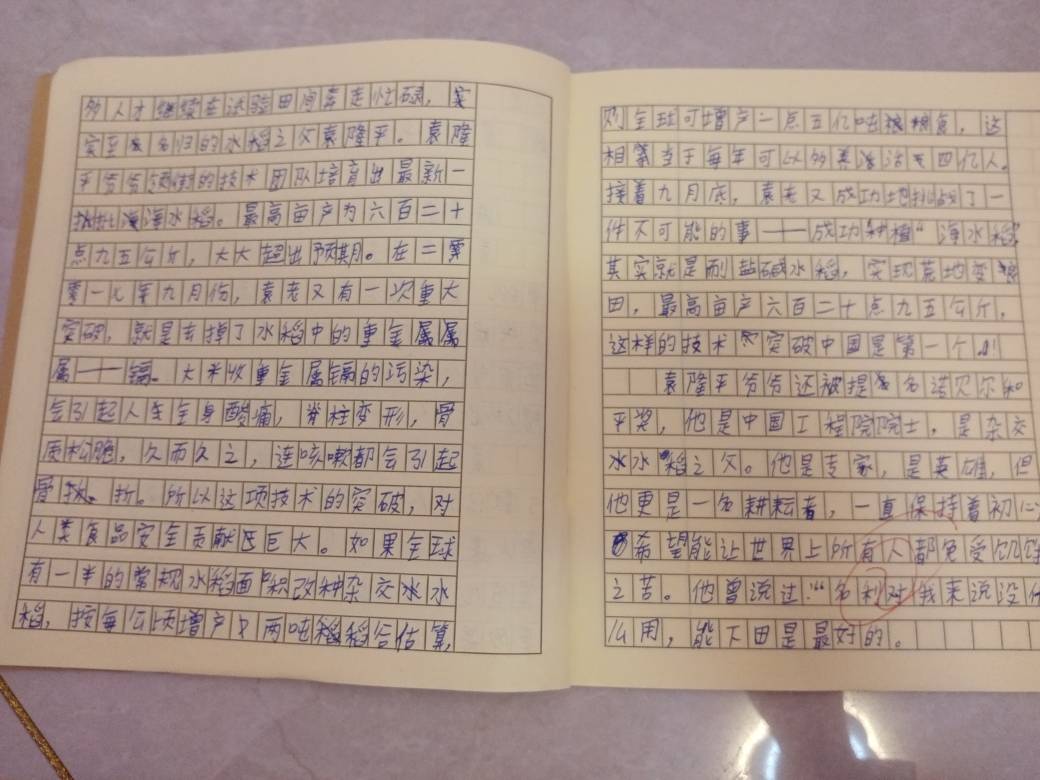 多人才继续在试验田间奔走忙碌，实
实至名归的水稻之父袁隆平。袁隆
平爷爷领衔的技术团队培育出最新一
批海水稻。最高亩产为六百二十
点九五公斤，大大超出预期。在二零
零一七年九月份，袁老又有一次重大
突破，就是去掉了水稻中的重金属属
属——镉。大米收重金属镉的污染，
会引起人生全身酸痛，脊柱变形，骨
质松脆，久而久之，连咳嗽都会引起
骨折。所以这项技术的突破，对
人类食品安全贡献巨大。如果全球
有一半的常规水稻面积改种杂交水水
稻，按每公顷增产两吨稻稻谷估算，
则全球可增产一点五亿吨粮食，这
相当于每年可以多养活四亿人。
接着九月底，袁老又成功地挑战了一
件不可能的事——成功种植“海水稻”
其实就是耐盐碱水稻，实现荒地变粮
田，最高亩产六百二十点九五公斤，
这样的技术突破中国是第一个！
袁隆平爷爷还被提名诺贝尔和
平奖，他是中国工程院院士，是杂交
水水稻之父。他是专家，是英雄，但
他更是一名耕耘者，一直保持着初心
希望能让世界上所有人都免受饥饿
之苦。他曾说过：“名利对我来说没什
么用，能下田是最好的。